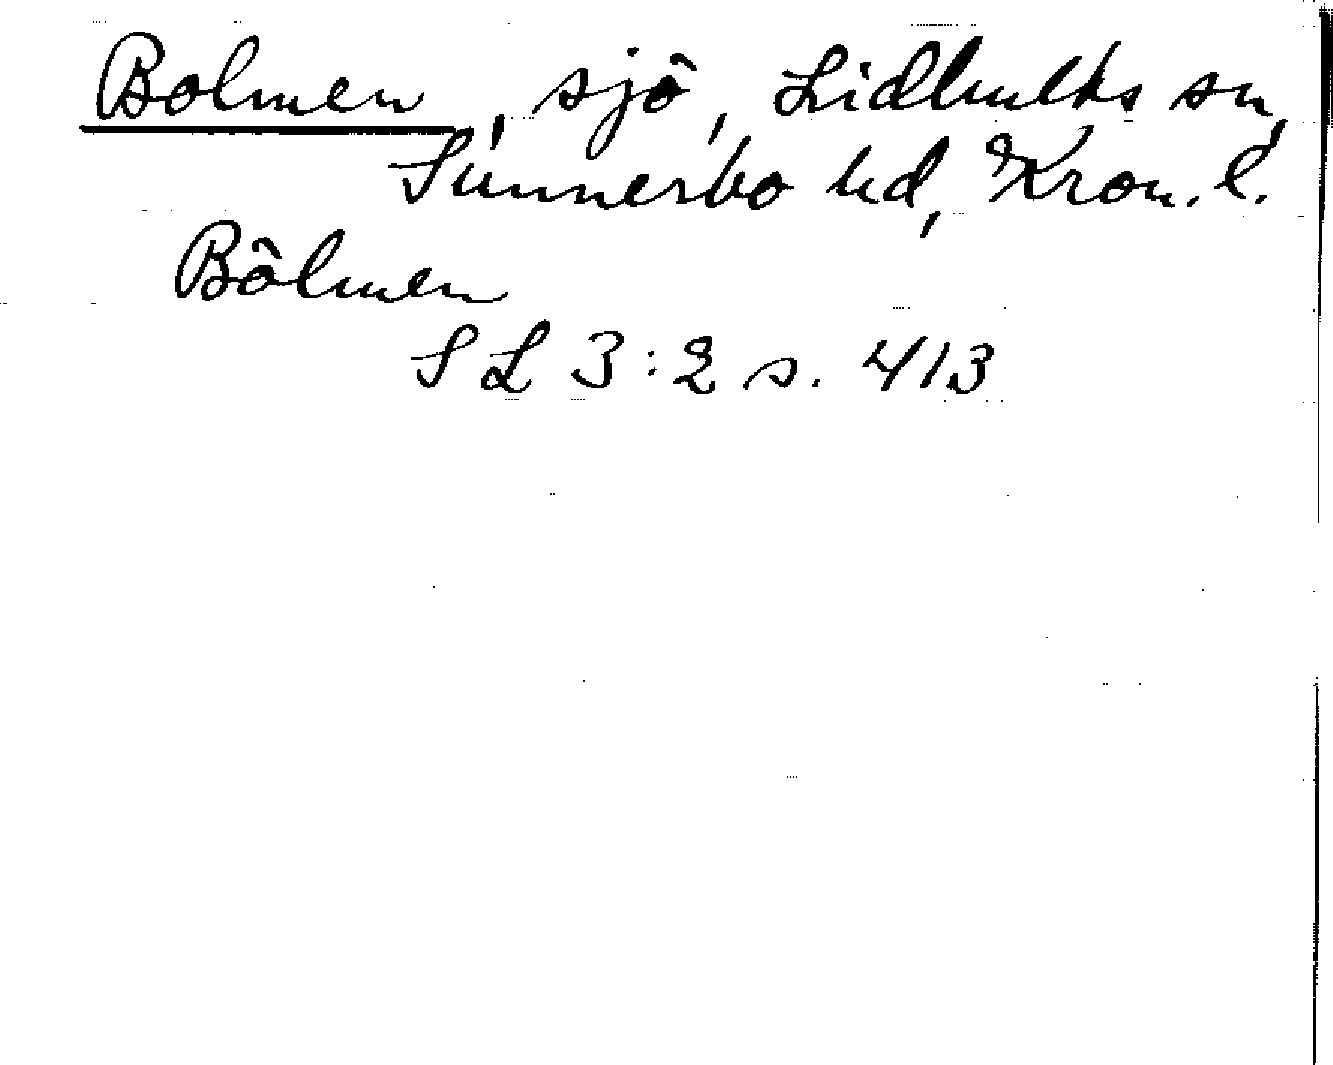 Bolmen, sjö, Lidhults sn,
Sunnerbo hd, Kron. l.
Bölmen
SL 3:2 s. 413